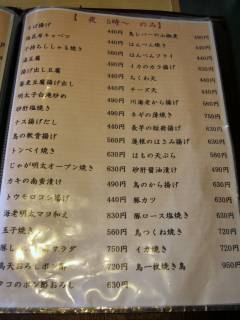 【 夜 5時〜 のみ】
そば揚げ 440円
塩昆布キャベツ 440円
子持ちししゃも焼き
温豆腐 490円
揚げ出し豆腐 490円
海老豆腐揚げ出し 490円
明太子白滝炒め 490円
砂肝塩焼き 490円
ナス揚げだし 510円
鳥の軟骨揚げ 510円
トンペイ焼き 530円
じゃが明太オーブン焼き 630円
カキの南蛮漬け 490円
トウモロコシ揚げ 440円
海老明太マヨ和え 830円
玉子焼き 560円
サラダ 720円
高天おろしポン酢 520円
タコのポン酢おろし 630円
鳥レバーの山椒煮 490円
はんぺん焼き 490円
はんぺんフライ 490円
イカのカラ揚げ 490円
ちくわ天 440円
チーズ天 440円
川海老から揚げ 560円
ネギの蒲焼き 560円
長芋の短冊揚げ 630円
蓮根のはさみ揚げ 630円
はもの天ぷら 630円
砂肝醤油漬け 490円
鳥のから揚げ 630円
豚カツ 630円
豚ロース塩焼き 630円
鳥つくね焼き 630円
イカ焼き 710円
鳥一枚焼き鳥 950円